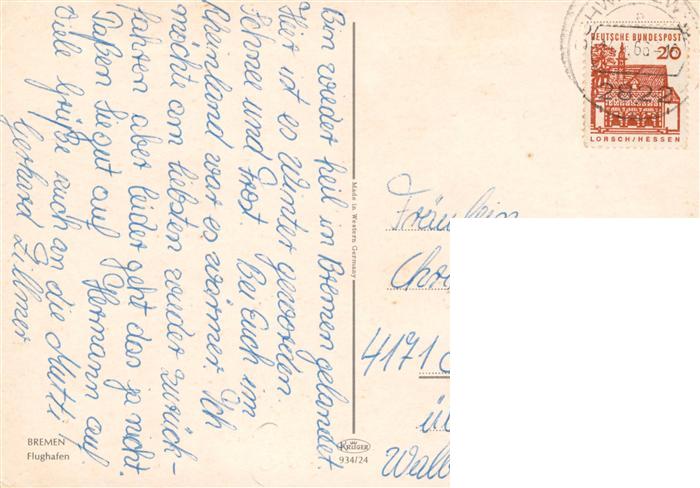 Bin wieder heil in Bremen gelandet.
Hier ist es Winter geworden.
Schnee und Frost. Bei Euch im
Rheinland war es wärmer. Ich
möchte am liebsten wieder zurück-
fahren aber leider geht das ja nicht.
Paßen Sie gut auf Hermann auf.
Viele Grüße auch an die Mutti
Gerhard Zillmer
BREMEN
Flughafen
Made in Western Germany
KRÜGER
934/24
DEUTSCHE BUNDESPOST
20
2822
LORSCH/HESSEN
Fräulein
4171